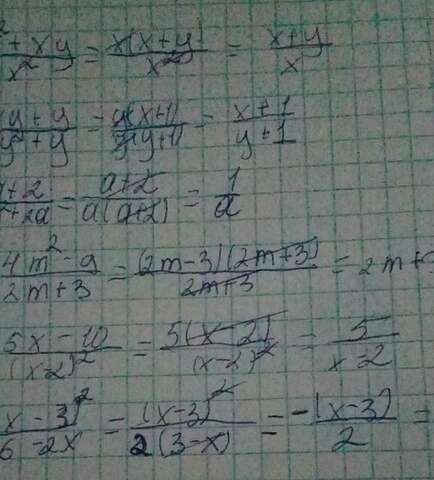 ² + xy / x² = x(x+y) / x² = x+y / x
y + y / y² + y = y(x+1) / y(y+1) = x+1 / y+1
+ 2 / + 2a = a+2 / a(a+2) = 1 / a
4m² - 9 / 2m + 3 = (2m-3)(2m+3) / 2m+3 = 2m
5x - 10 / (x-2)² = 5(x-2) / (x-2)² = 5 / x-2
x - 3)² / 6 - 2x = (x-3)² / 2(3-x) = -(x-3) / 2 =